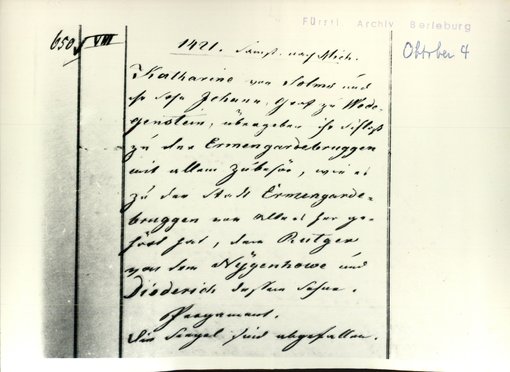 Fürstl. Archiv Berleburg
650 VIII
1421. Samst. nach Mich.
Oktober 4
Katharina von Solms und
ihr Sohn Johann, Graf zu Witt-
genstein, übergeben ihr Schloß
zu der Ermengardebruggen
mit allem Zubehör, wie es
zu der Stadt Ermengarde-
bruggen von Alters her ge-
hört hat, dem Rutger
von dem Nÿgenhowe und
Diederich dessem Sohne.
Pergament.
Die Siegel sind abgefallen.